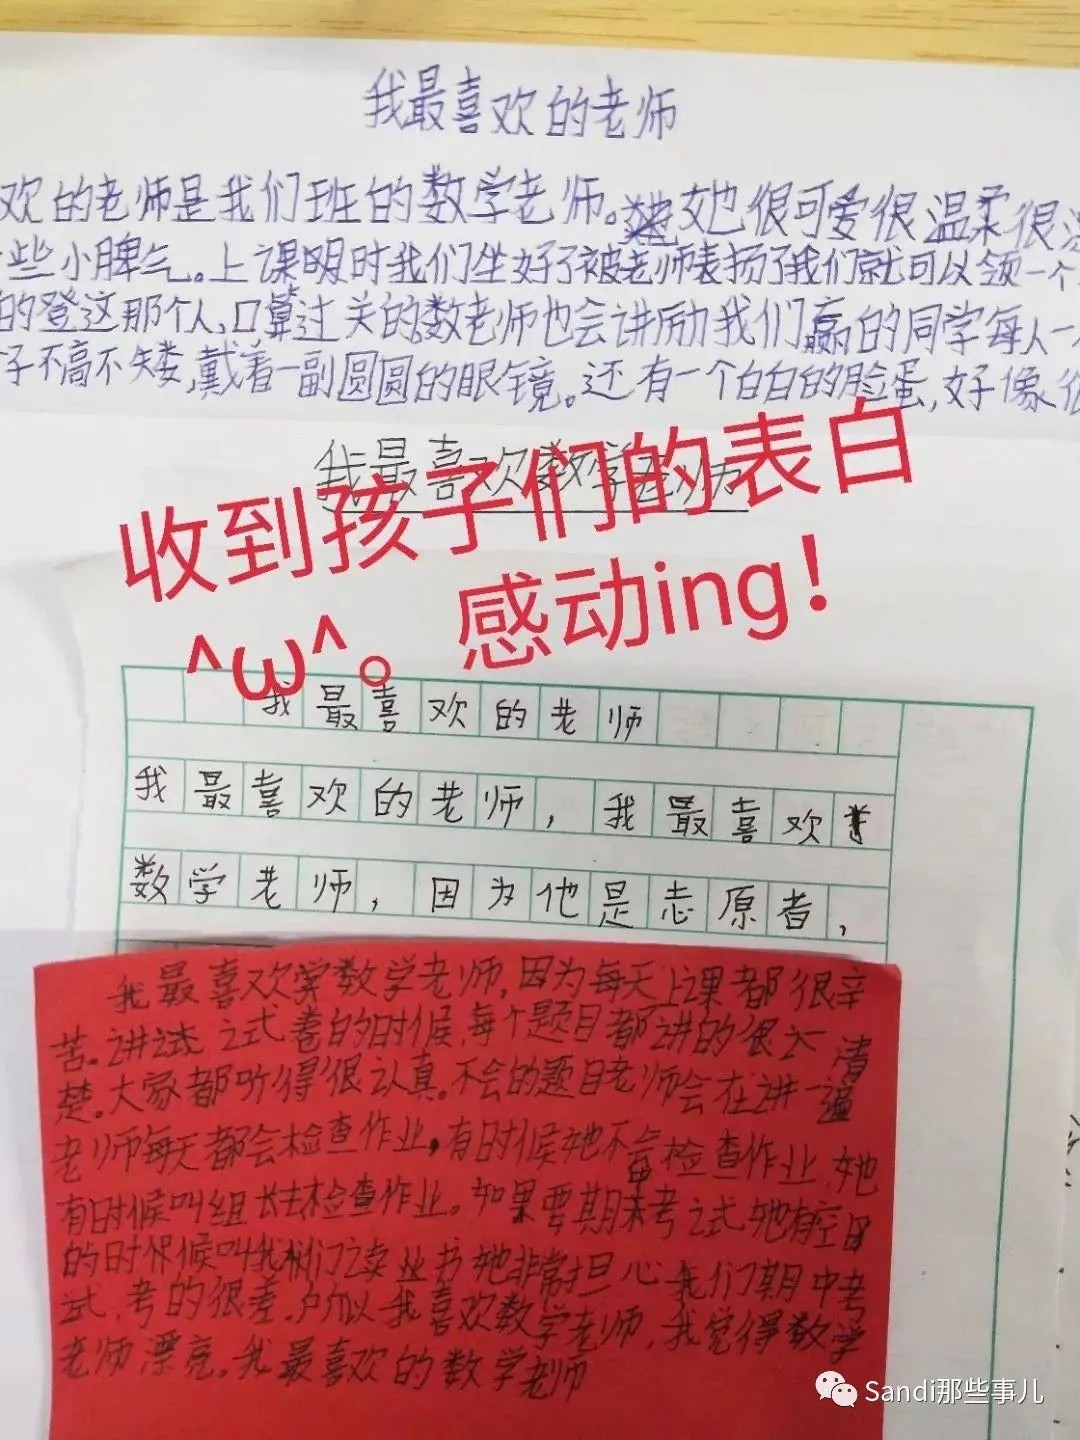 我最喜欢的老师
欢的老师是我们班的数学老师。她很可爱很温柔很
些小脾气。上课时我们坐好了被老师表扬了我们就可以领一个
的登这那个人,口算过关的数老师也会讲励我们赢的同学每人一
子不高不矮,戴着一副圆圆的眼镜。还有一个白白的脸蛋,好像很
我最喜欢数学老师
收到孩子们的表白
^ω^。感动ing!
我最喜欢的老师
我最喜欢的老师,我最喜欢
数学老师,因为他是志愿者,
我最喜欢学数学老师,因为每天上课都很辛
苦。讲试卷的时候,每个题目都讲的很清
楚。大家都听得很认真。不会的题目老师会在讲一遍
老师每天都会检查作业。有时候她不会检查作业,她
有时候叫组长去检查作业。如果要期末考试,她有空
的时候叫我们读书她非常担心我们期中考
式,考的很差,所以我喜欢数学老师,我觉得数学
老师漂亮。我最喜欢的数学老师
Sandi那些事儿